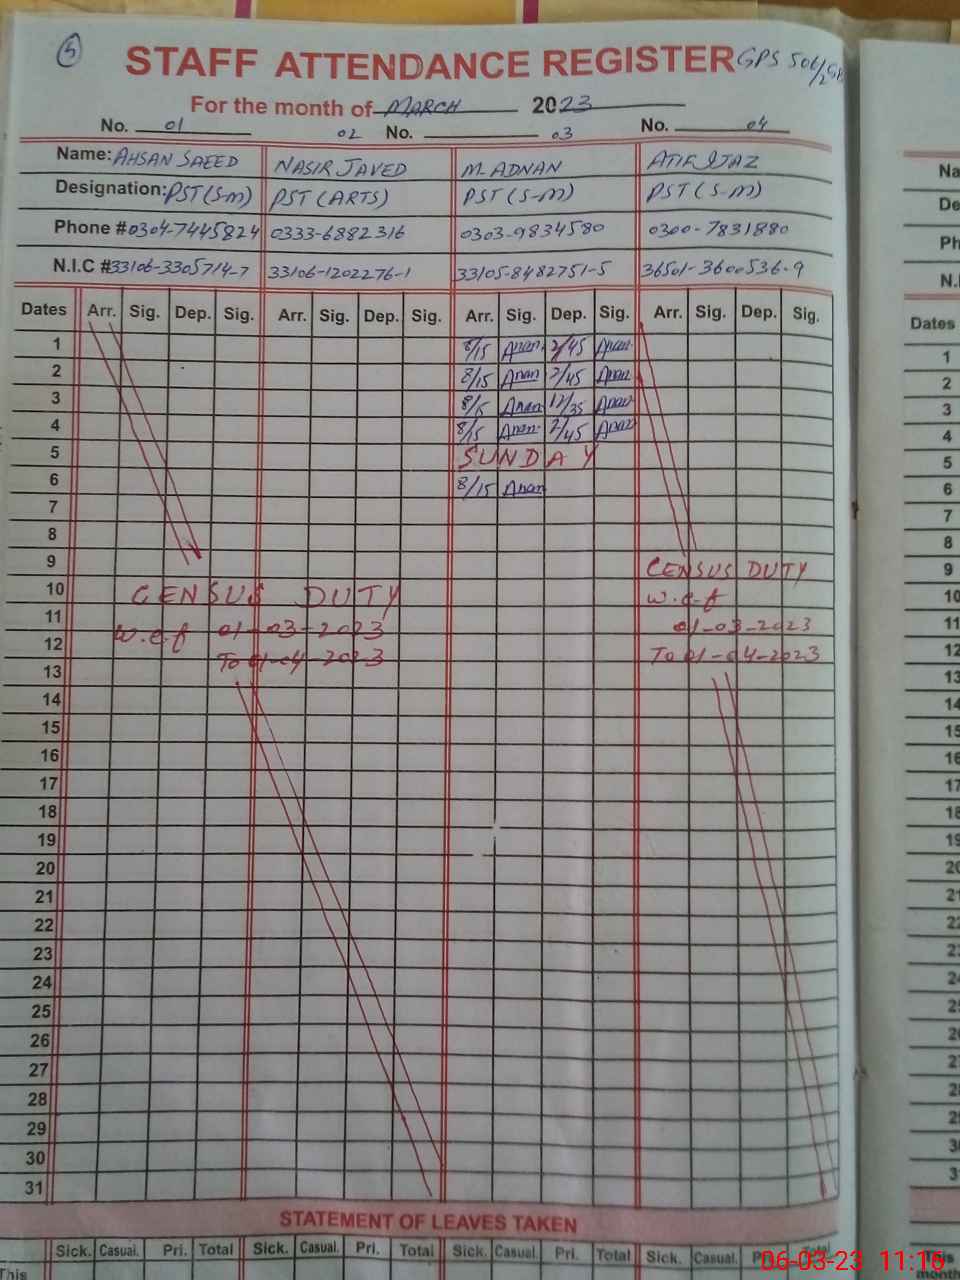 5
STAFF ATTENDANCE REGISTER GPS 506/2GB
For the month of MARCH 2023
No. 01 02 No. 03 No. 04
Name: AHSAN SAEED NASIR JAVED M. ADNAN ATIF IJAZ
Designation: PST(S-M) PST(ARTS) PST(S-M) PST(S-M)
Phone # 0304-7445824 0333-6882316 0303-9834580 0300-7831880
N.I.C # 33106-3305714-7 33106-1202276-1 33105-8482751-5 36501-3600536-9
Dates Arr. Sig. Dep. Sig. Arr. Sig. Dep. Sig. Arr. Sig. Dep. Sig. Arr. Sig. Dep. Sig.
1 8/15 Anan 2/45 Anan
2 8/15 Anan 2/45 Anan
3 8/15 Anan 12/35 Anan
4 8/15 Anan 2/45 Anan
5 SUNDAY
6 8/15 Anan
7
8
9 CENSUS DUTY
10 CENSUS DUTY w.e.f
11 w.e.f 01-03-2023 01-03-2023
12 To 01-04-2023 To 01-04-2023
13
14
15
16
17
18
19
20
21
22
23
24
25
26
27
28
29
30
31
STATEMENT OF LEAVES TAKEN
Sick. Casual. Pri. Total Sick. Casual. Pri. Total Sick. Casual. Pri. Total Sick. Casual.
This
Na
De
Ph
N.I
Dates
1
2
3
4
5
6
7
8
9
10
11
12
13
14
15
16
17
18
19
20
21
22
23
24
25
26
27
28
29
30
31
This
month
06-03-23 11:16